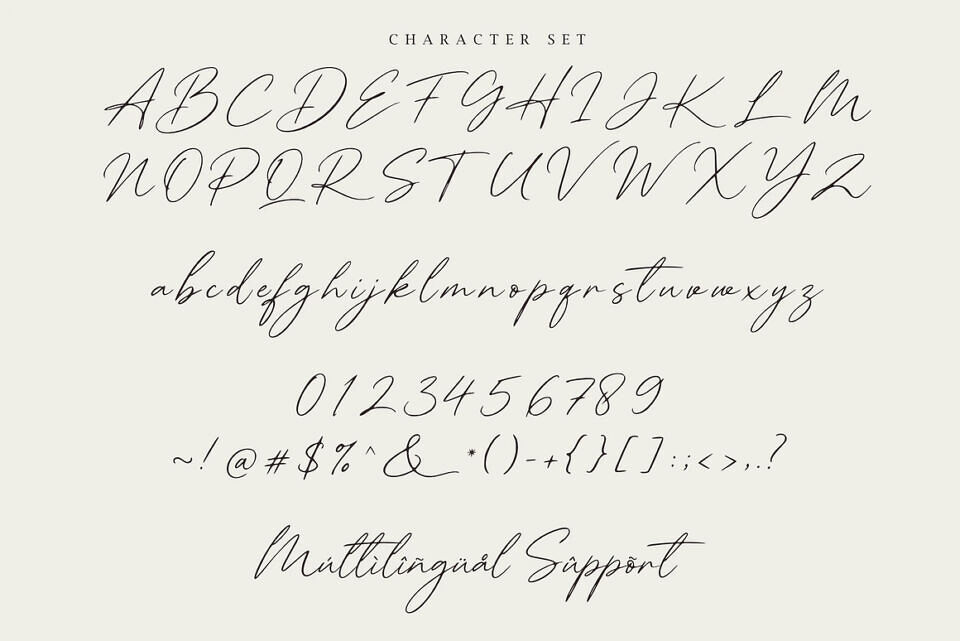 CHARACTER SET
ABCDEFGHIJKLM
NOPQRSTUVWXYZ
abcdefghijklmnopqrstuvwxyz
0123456789
~!@#$%^&*()-+{}[]:;<>,.?
Múltìlîñgüål Sûppõrt